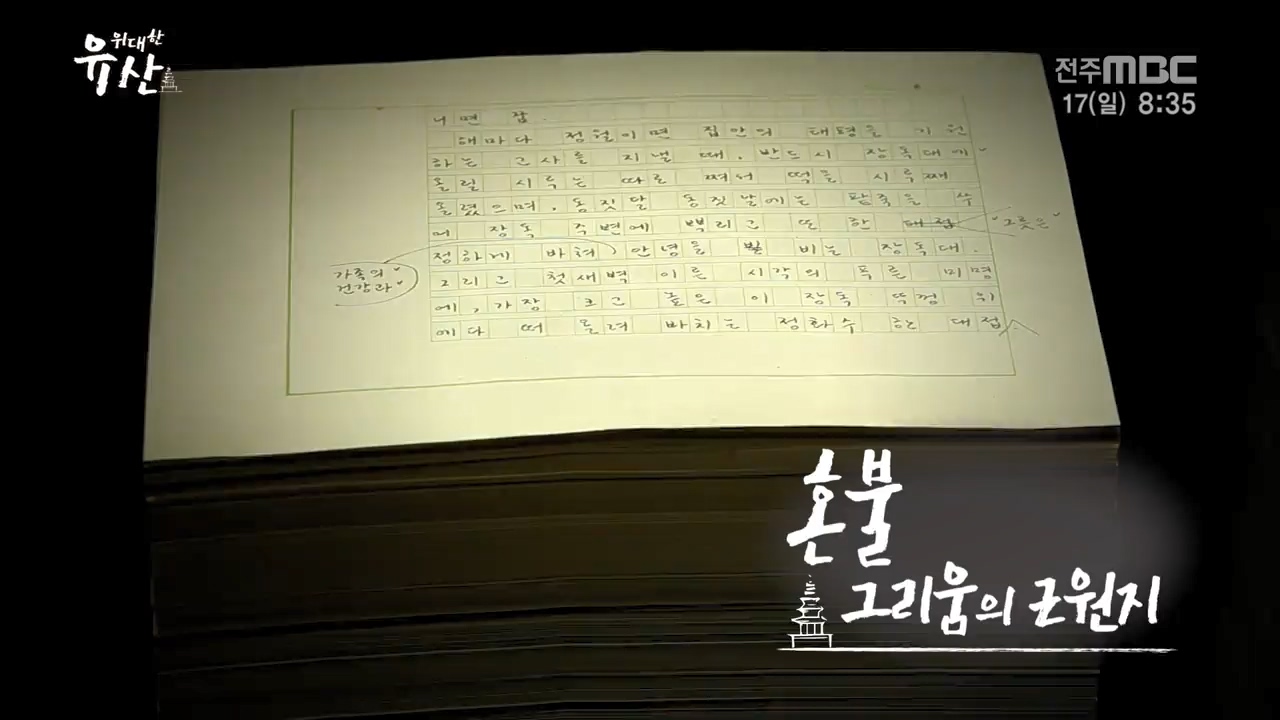 위대한
유산
전주MBC
17(일) 8:35
니면 잠.
해마다 정월이면 집안의 태평을 기원
하는 고사를 지낼 때, 반드시 장독대에
올릴 시루는 따로 쪄서 떡을 시루째
올렸으며, 동짓달 동짓날에는 팥죽을 쑤
어 장독 주변에 뿌리고 또 한 대접
그릇은
정하게 바쳐 안녕을 빌 비는 장독대.
가족의
건강과
그리고 첫새벽 이른 시각의 푸른 미명
에, 가장 크고 높은 이 장독 뚜껑 위
에다 떠 올려 바치는 정화수 한 대접
혼불
그리움의 근원지